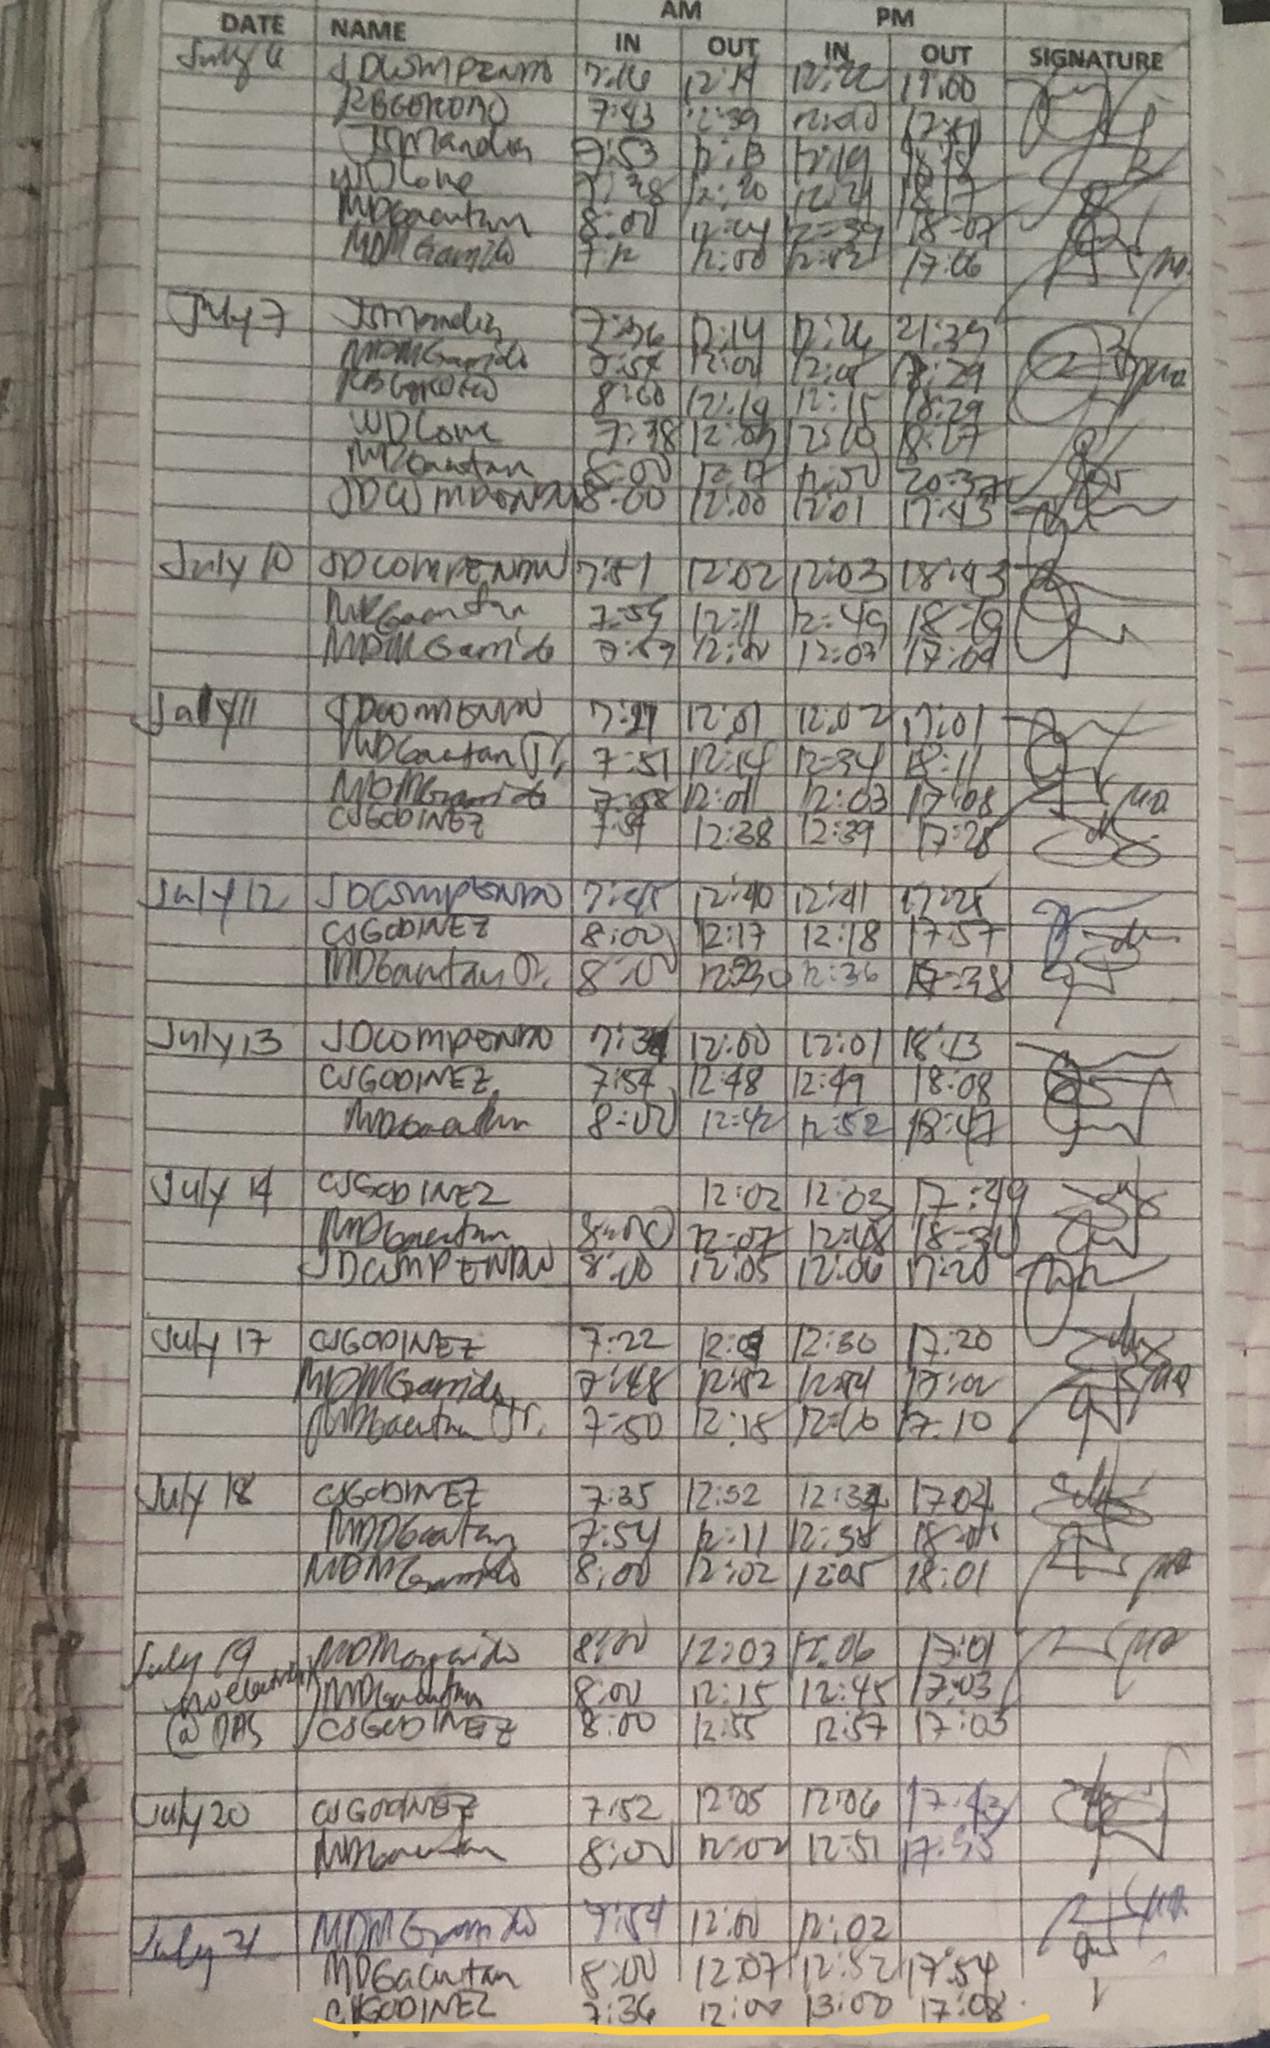 AM PM
DATE NAME IN OUT IN OUT SIGNATURE
July 6 JDCOMPENDO 7:16 12:19 12:22 17:00
7:43 12:39 12:40
JSMandia 7:53 12:13 12:19 18:18
WDCone 7:38 12:20 12:24 18:17
MDGacutan 8:00 12:24 12:39 18:07
MDMGarrido 7:12 12:00 12:02 17:06
July 7 JSMandia 7:36 12:14 12:26 21:39
MDMGarrido 7:54 12:00 18:29
8:00 12:14 12:15 18:29
WDCone 7:38 12:09 12:10 18:27
Gacutan 8:00 12:17 12:50 20:37
JDCOMPENDO 8:00 12:00 12:01 17:43
July 10 JDCOMPENDO 7:51 12:02 12:03 18:43
MDGacutan 7:59 12:11 12:49 18:19
MDMGarrido 7:59 12:00 12:03 17:09
July 11 JDCOMPENDO 7:27 12:01 12:02 17:01
MDGacutan Jr. 7:51 12:14 12:34 18:11
MDMGarrido 7:58 12:01 12:03 17:08
CJGODINEZ 12:38 12:39 17:28
July 12 JDCOMPENDO 7:45 12:40 12:41 17:25
CJGODINEZ 8:00 12:17 12:18 17:57
MDGacutan Jr. 8:00 12:30 12:36 17:38
July 13 JDCOMPENDO 12:00 12:01 18:13
CJGODINEZ 7:54 12:48 12:49 18:08
MDGacutan 8:00 12:42 12:52 18:47
July 14 CJGODINEZ 12:02 12:03 17:49
MDGacutan 8:00 12:07 12:48 18:30
JDCOMPENDO 8:00 12:05 12:06 17:20
July 17 CJGODINEZ 7:22 12:30 17:20
MDMGarrido 7:48 12:02 12:04 17:02
MDGacutan Jr. 7:50 12:18 17:10
July 18 CJGODINEZ 7:35 12:32 17:04
MDGacutan 7:54 12:11 12:38
MDMGarrido 8:00 12:02 12:05 18:01
July 19 MDMGarrido 8:00 12:03 12:06 17:01
MDGacutan 8:00 12:15 12:45 17:03
CJGODINEZ 8:00 12:55 12:57 17:05
July 20 CJGODINEZ 7:52 12:05 12:06 17:43
MDGacutan 8:00 12:02 12:51 17:55
July 21 MDMGarrido 7:54 12:00 12:02
MDGacutan 8:00 12:07 12:52 17:54
CJGODINEZ 7:36 12:00 13:00 17:08